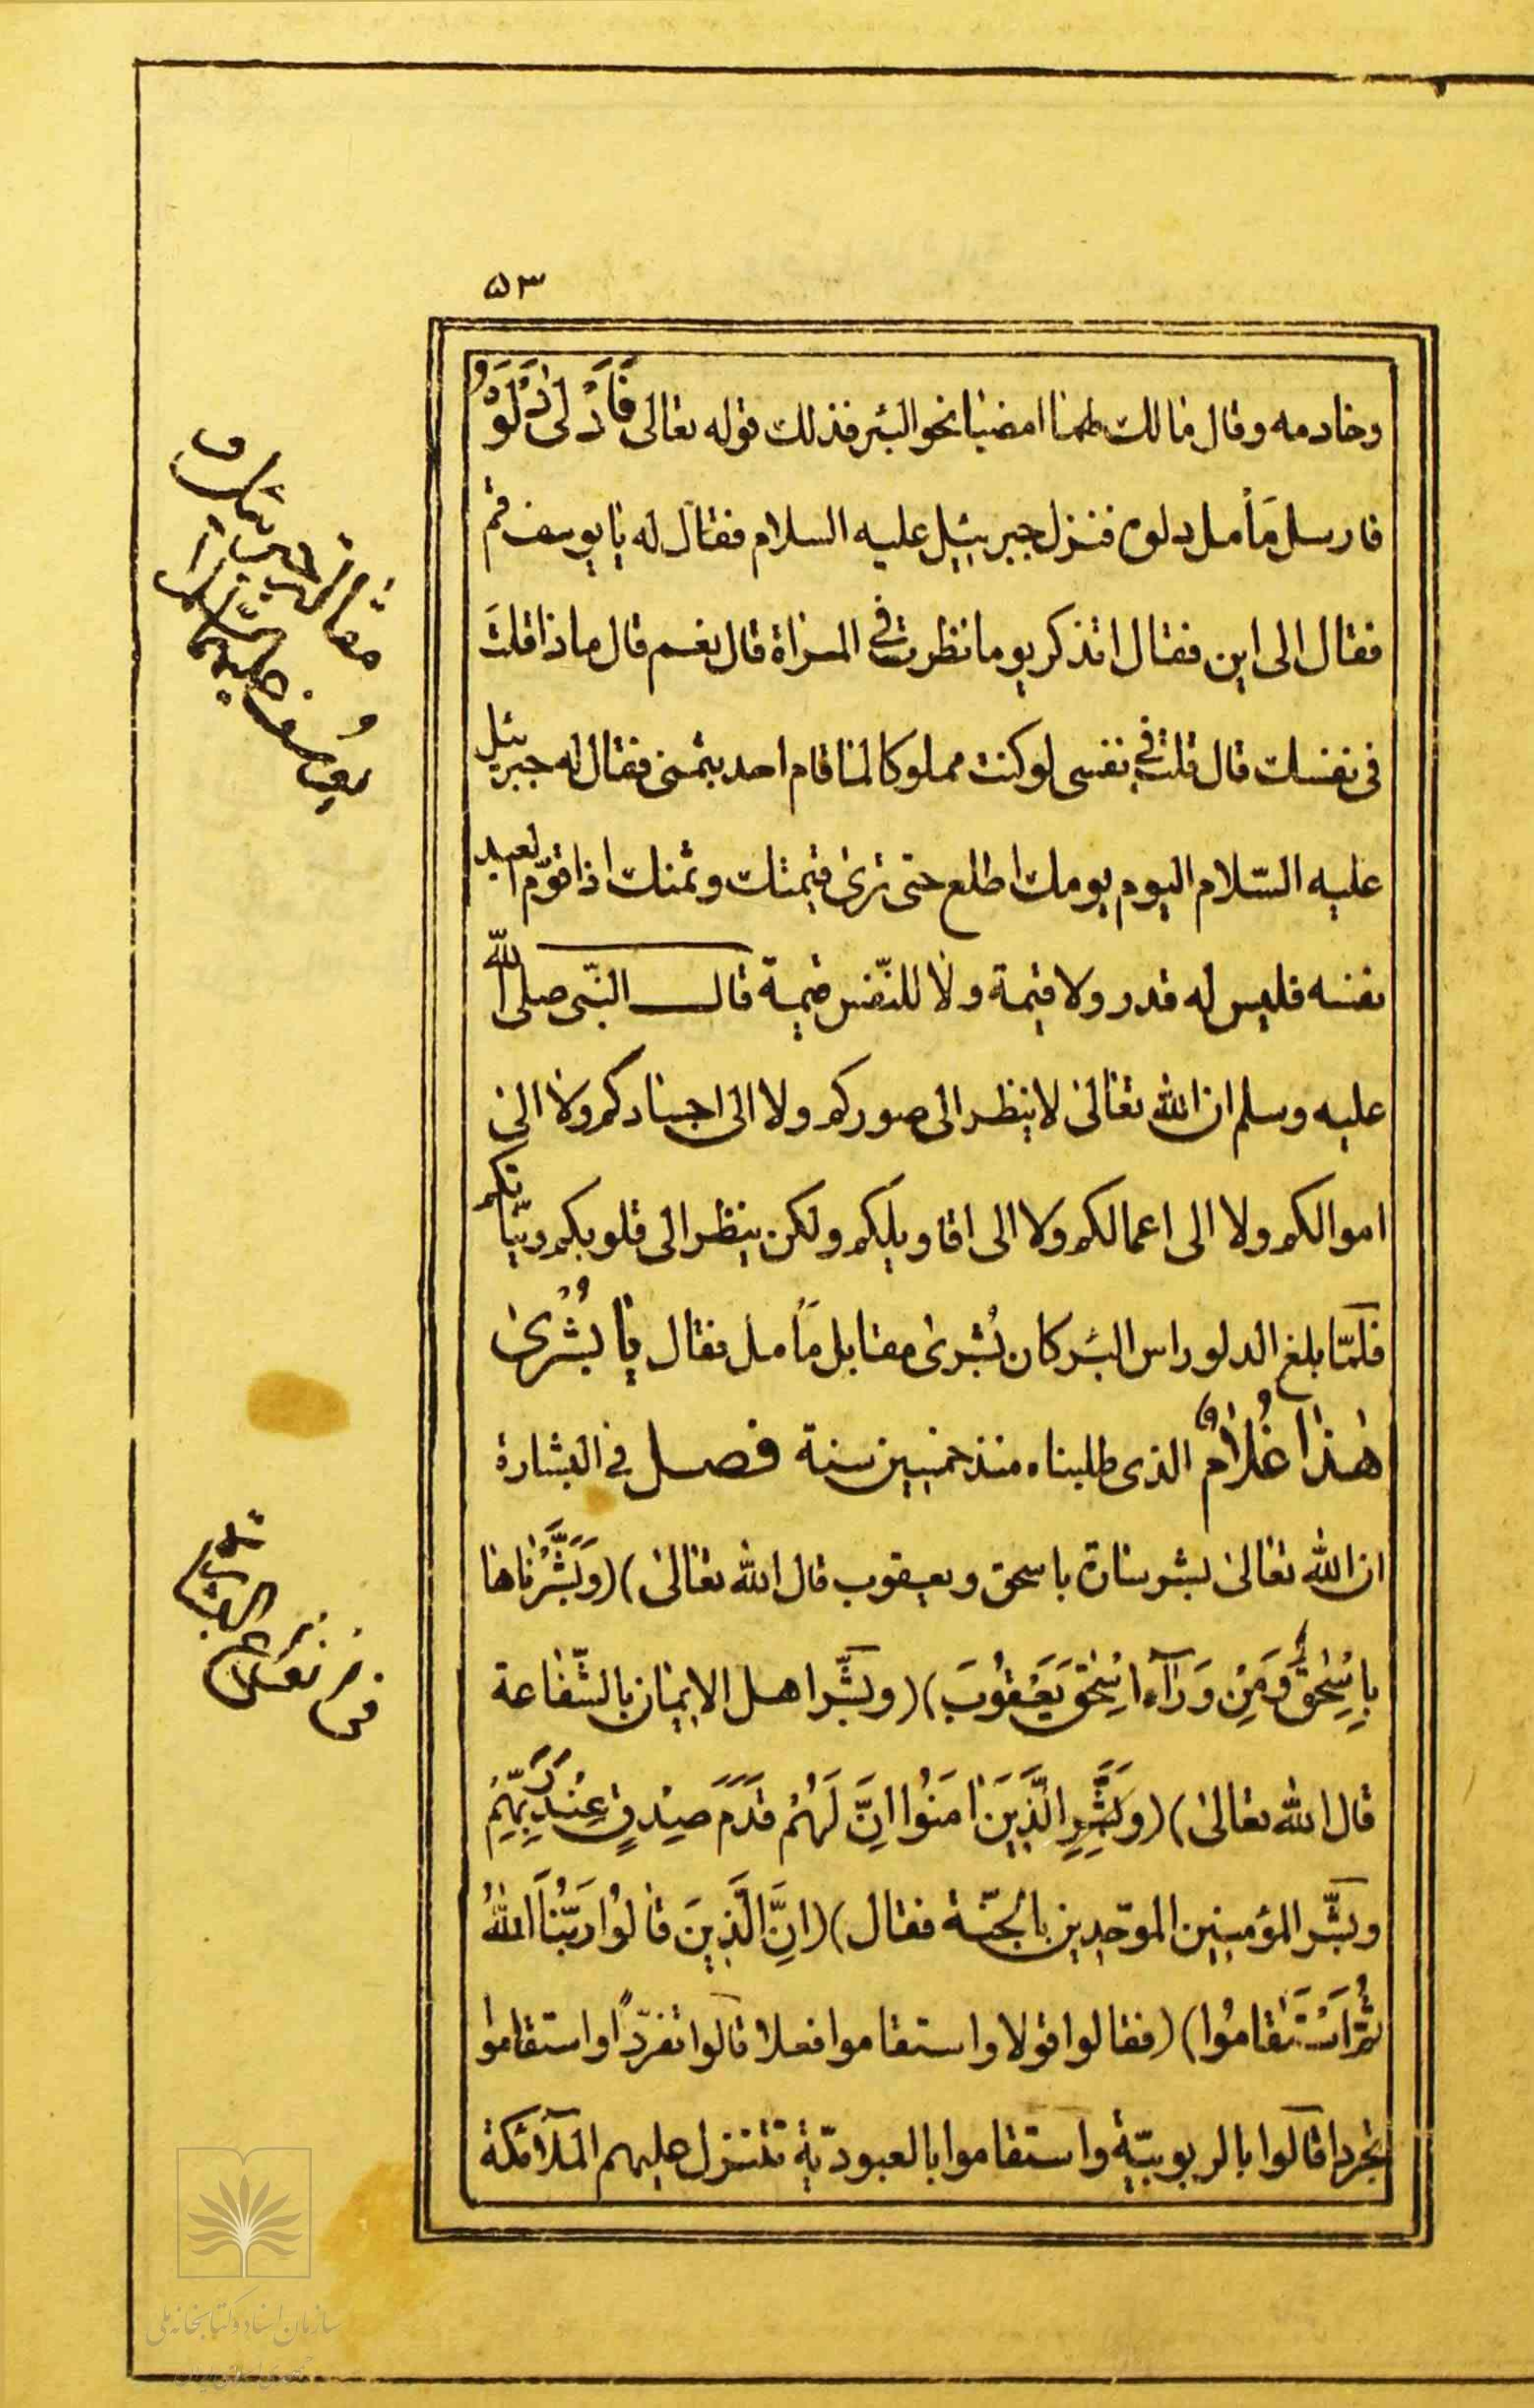 ۵۳
وخادمه وقال مالك لهما امضيا نحو البئر فذلك قوله تعالى فَاَدْلى دَلْوَهُ
فارسل مَأمل دلوه فنزل جبرئيل عليه السلام فقال له يا يوسف قم
فقال الى اين فقال اتذكر يوما نظرت في المراة قال نعم قال ماذا قلتَ
فى نفسك قال قلت في نفسى لو كنت مملوكا لما قام احد بثمنى فقال له جبرئيل
عليه السّلام اليوم يومك اطلع حتى ترى قيمتك وثمنك اذا قوّم العبد
نفسه فليس له قدر ولا قيمة ولا للنّفس قيمة قال النّبى صلى الله
عليه وسلم ان الله تعالى لا ينظر الى صوركم ولا الى اجسادكم ولا الى
اموالكم ولا الى اعمالكم ولا الى اقاويلكم ولكن ينظر الى قلوبكم ونيّاتكم
فلمّا بلغ الدلو راس البئر كان بُشرى مقابل مَأمل فقال يا بُشْرى
هٰذا غُلامٌ الذى طلبناه منذ خمسين سنة فصل في البشارة
ان الله تعالى بشر سارة باسحق ويعقوب قال الله تعالى) (وَبَشَّرْناها
بِاِسْحٰقَ وَمِنْ وَرَآءِ اِسْحٰقَ يَعْقُوبَ) (وبشّر اهل الايمان بالشّفاعة
قال الله تعالى) (وَبَشِّرِ الَّذِينَ اٰمَنُوا اَنَّ لَهُمْ قَدَمَ صِدْقٍ عِنْدَ رَبِّهِمْ
وبشّر المؤمنين الموحّدين بالجنّة فقال) (اِنَّ الَّذِينَ قالُوا رَبُّنَا اللهُ
ثُمَّ اسْتَقامُوا) (فقالوا قولا واستقاموا فعلا قالوا تفرّدًا واستقاموا
تجردا قالوا بالربوبيّة واستقاموا بالعبوديّة تتنزل عليهم الملآئكة
يوسف عليهما
فى
البشارة
سازمان اسناد و کتابخانه ملی